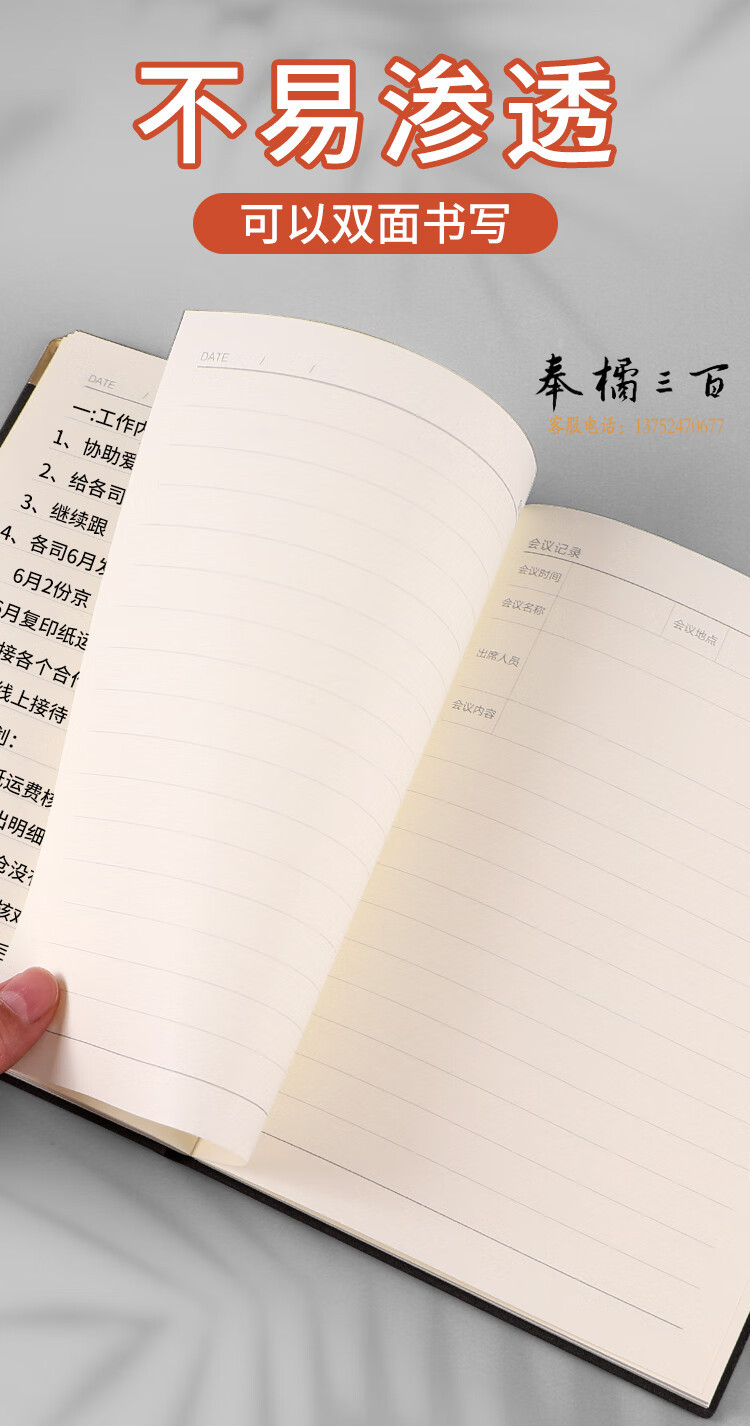 不易渗透
可以双面书写
奉橘三百
客服电话：13752470677
DATE / /
DATE /
一:工作内
1、协助爱
2、给各司
3、继续跟
4、各司6月发
6月2份京
6月复印纸运
接各个合作
线上接待
划：
托运费核
出明细
仓没存
核对
会议记录
会议时间
会议名称
会议地点
出席人员
会议内容